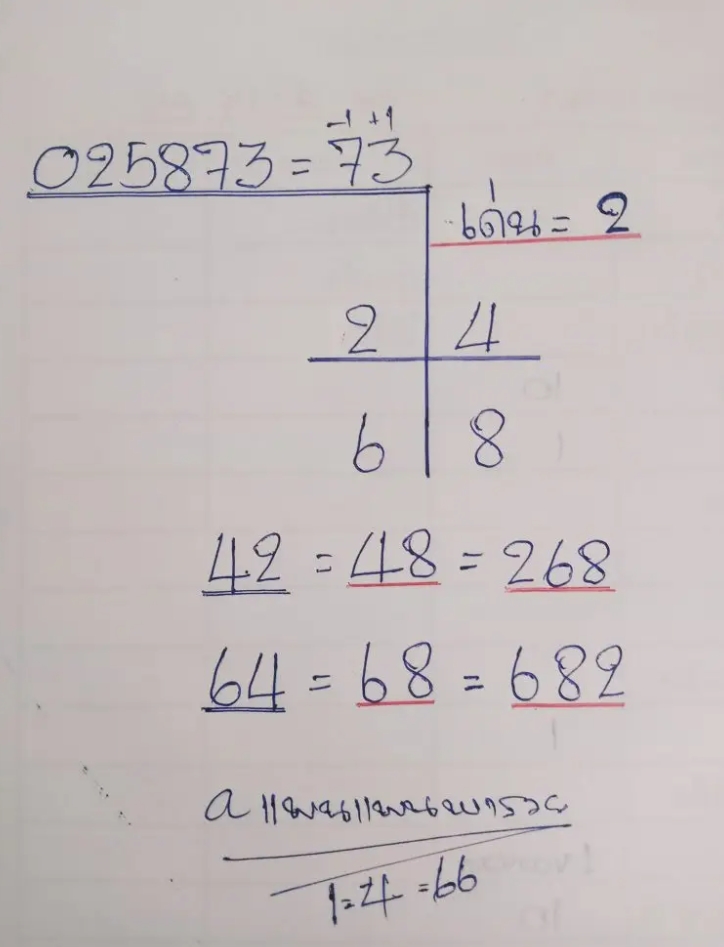 -1 +1
025873 = 73
เด่น = 2
2 4
6 8
42 = 48 = 268
64 = 68 = 682
1 = 4 = 66